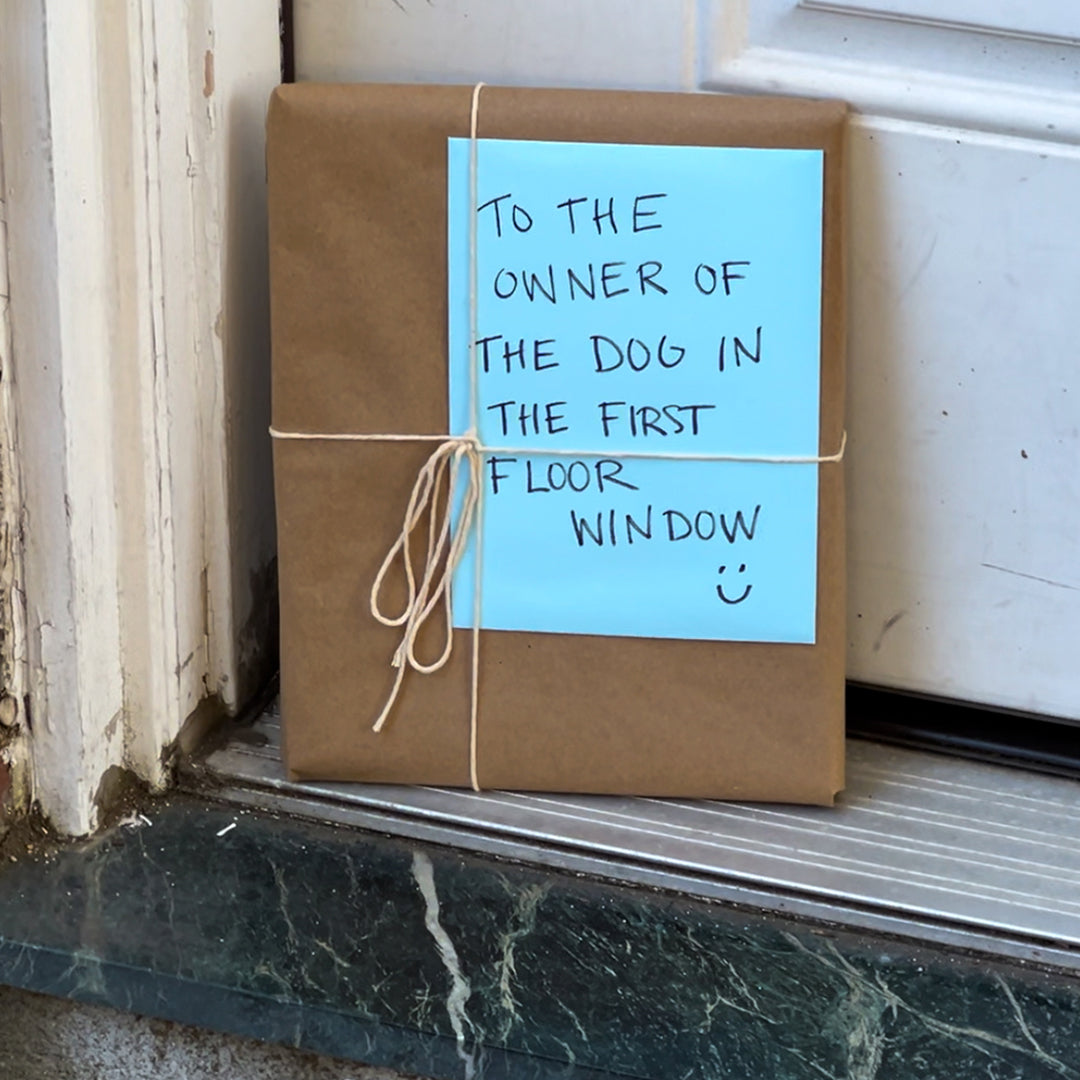 TO THE
OWNER OF
THE DOG IN
THE FIRST
FLOOR
WINDOW